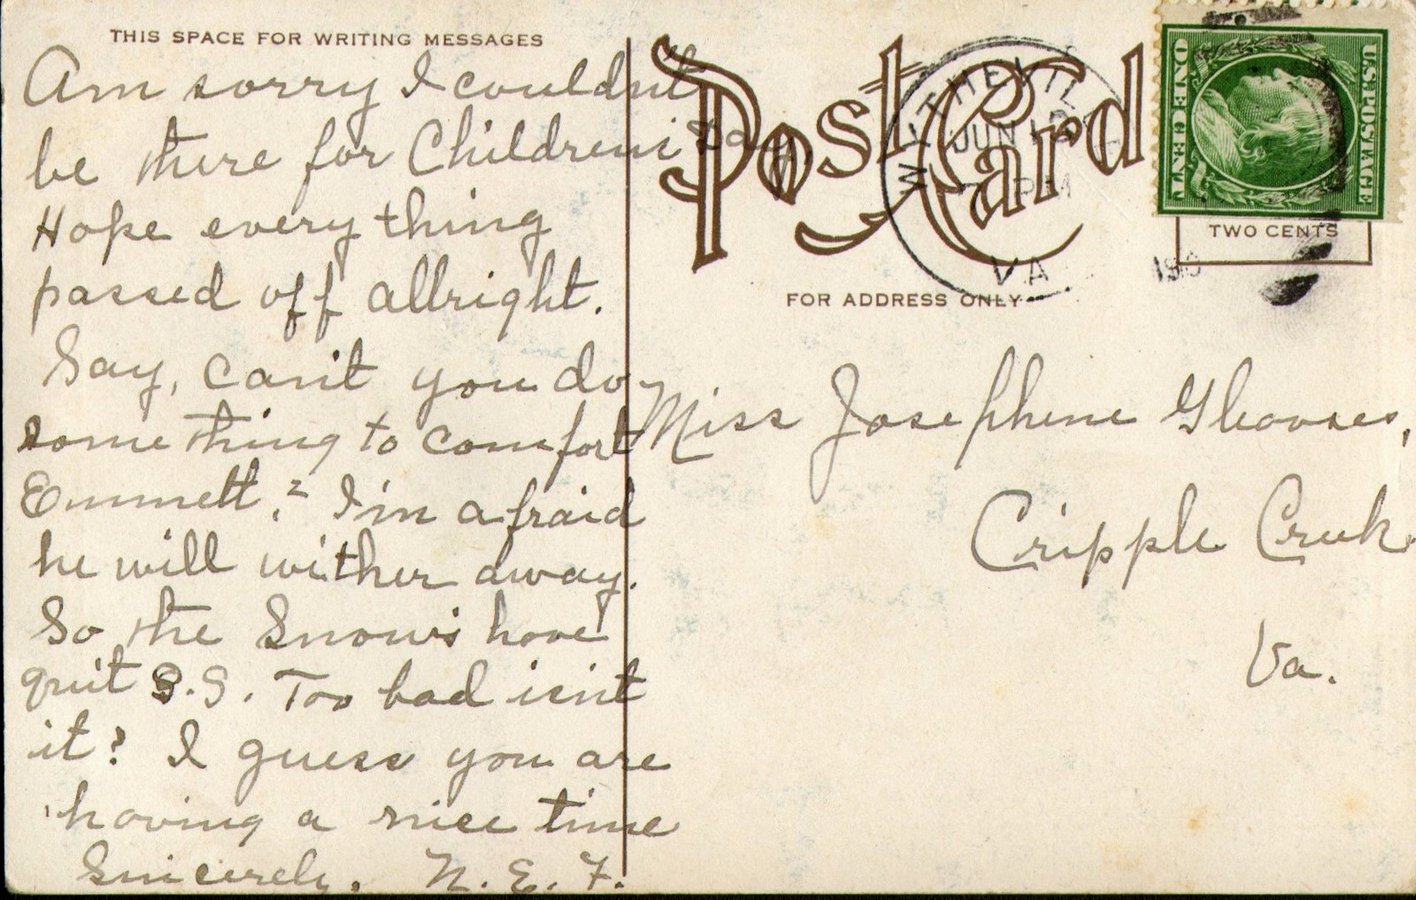 THIS SPACE FOR WRITING MESSAGES
Am sorry I couldn't
be there for Children's Day.
Hope everything
passed off allright.
Say, can't you do
something to comfort
Emmett? I'm afraid
he will wither away.
So the Snows have
quit S.S. Too bad isn't
it? I guess you are
having a nice time
Sincerely, N. E. F.
Post Card
WYTHEVILLE
JUN
PM
VA
U.S. POSTAGE
ONE CENT
TWO CENTS
FOR ADDRESS ONLY
Miss Josephine Gleaves,
Cripple Creek
Va.